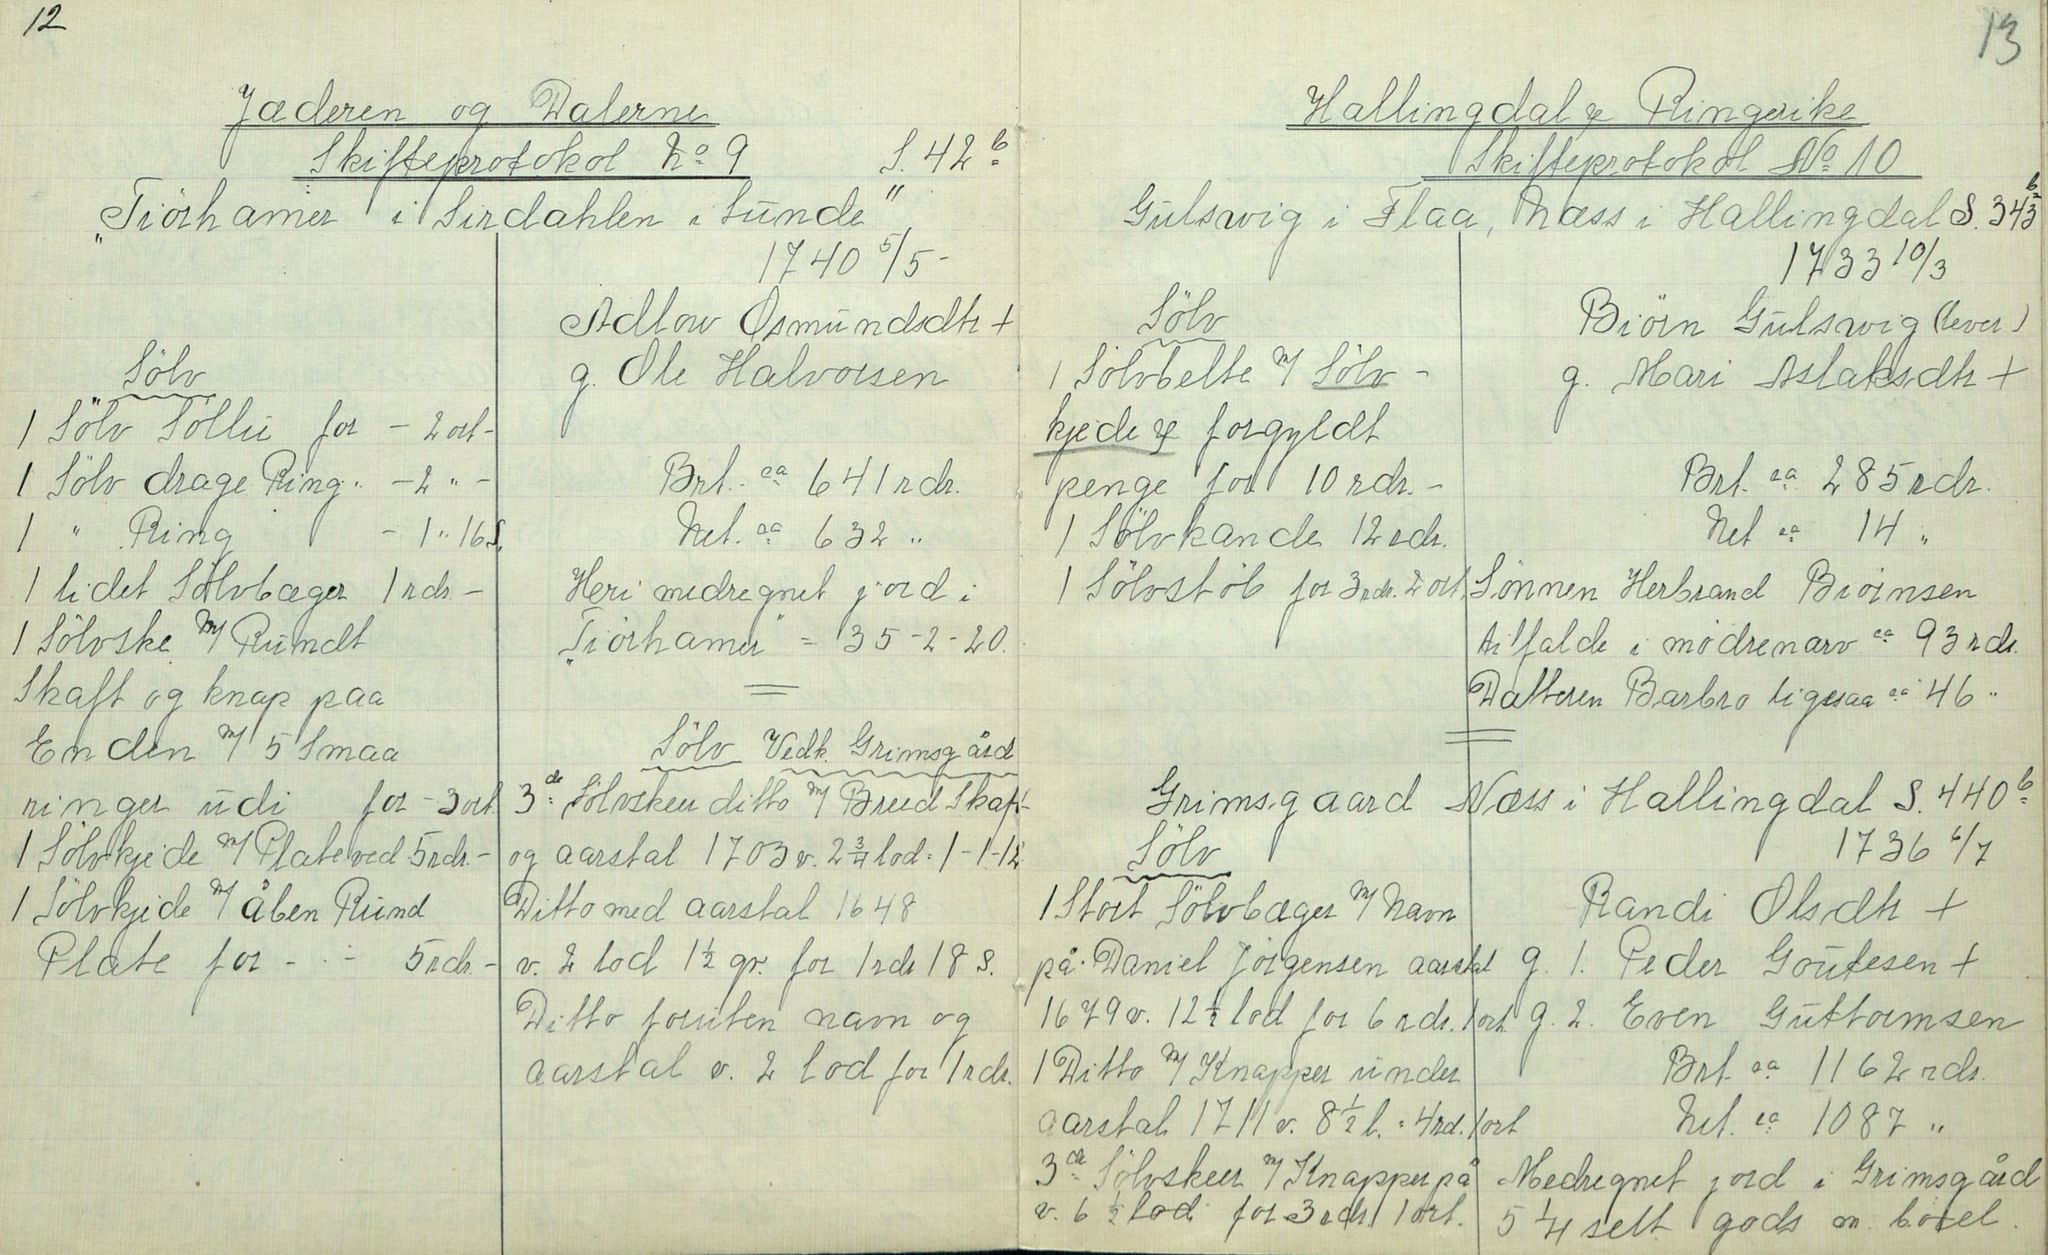 12
Jæderen og Dalerne
Skifteprotokol No 9 S. 42 b
"Tiørhamer i Sirdahlen i Lunde"
1740 5/5 -
Sölv
1 Sölv Söllu for - 2 ort -
1 Sölv drage Ring " - 2 " -
1 " Ring - 1 " 16 S.
1 lidet Sölvbæger 1 rdr -
1 Sölvske m/ Rundt
Skaft og knap paa
Enden m/ 5 Smaa
ringer udi for - 3 ort.
1 Sölvkjede m/ Plate ved 5 rdr. -
1 Sölvkjede m/ åben Rund
Plate for - - 5 rdr. -
Adlow Osmundsdtr +
g. Ole Halvorsen
Brt. ca 641 rdr.
Net. ca 632 "
Heri medregnet jord i
"Tiørhamer" = 35-2-20.
Sölv Vedk. Grimsgård
3 de Sölvskeer ditto m/ Breed Skaft
og aarstal 1703 v. 2 3/4 lod = 1-1-12
Ditto med aarstal 1648
v. 2 lod 1 1/2 qv. for 1 rdr 18 S.
Ditto foruten navn og
aarstal v. 2 lod for 1 rdr.
13
Hallingdal & Ringerike
Skifteprotokol No 10
Gulswig i Flaa, Næss i Hallingdal S. 343 b
1733 10/3
Sölv
1 Sölvbelte m/ Sölv -
kjede & forgyldt
penge for 10 rdr. -
1 Sölvkande 12 rdr.
1 Sölvstöb for 3 rdr. 2 ort.
Biörn Gulswig (lever)
g. Mari Aslaksdtr +
Brt. ca 285 rdr.
Net ca 14 "
Sönnen Herbrand Biörnsen
tilfalde i mödrenarv ca 93 rdr.
Datteren Barbro ligesaa ca 46 "
Grimsgaard Næss i Hallingdal S. 440 b
1736 6/7
Sölv
1 Stort Sölvbæger m/ Navn
på Daniel Jörgensen aarstal
1679 v. 12 1/2 lod for 6 rdr. 1 ort.
1 Ditto m/ Knapper under
aarstal 1711 v. 8 1/2 l. = 4 rd. 1 ort
3 de Sölvskeer m/ Knapper på
v. 6 1/2 lod for 3 rdr. 1 ort.
Randi Olsdtr +
g. 1. Peder Goutesen +
g. 2. Even Guttormsen
Brt ca 1162 rdr.
Net. ca 1087 "
Medregnet jord i Grimsgård
5 1/4 sett gods m. böxel.